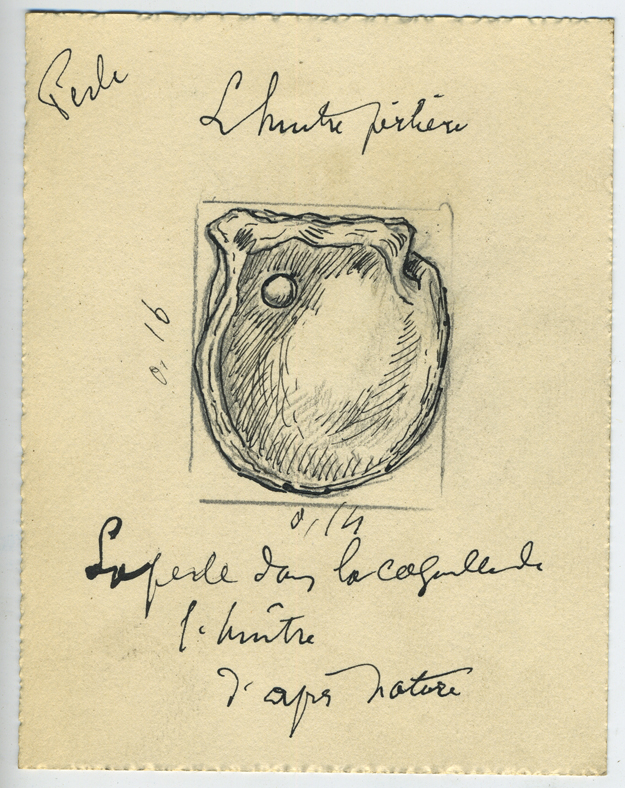 Perle
L'huitre perlière
0,16
0,14
La perle dans la coquille de
l'huître
d'après nature